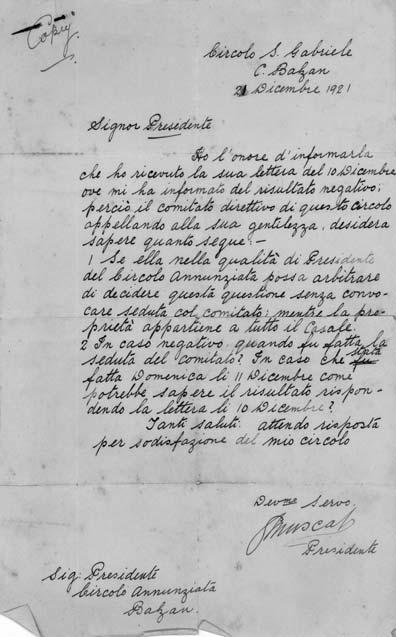 Copy
Circolo S. Gabriele
C. Balzan
21 Dicembre 1921
Signor Presidente
Ho l'onore d'informarla
che ho ricevuto la sua lettera del 10 Dicembre
ove mi ha informato del risultato negativo;
perciò il comitato direttivo di questo circolo
appellando alla sua gentilezza, desidera
sapere quanto segue:—
1 Se ella nella qualità di Presidente
del Circolo Annunziata possa arbitrare
di decidere questa questione senza convo-
care seduta col comitato; mentre la pro-
prietà appartiene a tutto il Casale.
2 In caso negativo, quando fu fatta la
seduta del comitato? In caso che fu stata
fatta Domenica li 11 Dicembre come
potrebbe, sapere il risultato rispon-
dendo la lettera li 10 Dicembre?
Tanti saluti: attendo risposta
per sodisfazione del mio circolo
Devmo Servo.
Muscat
Presidente
Sig: Presidente
Circolo Annunziata
Balzan.